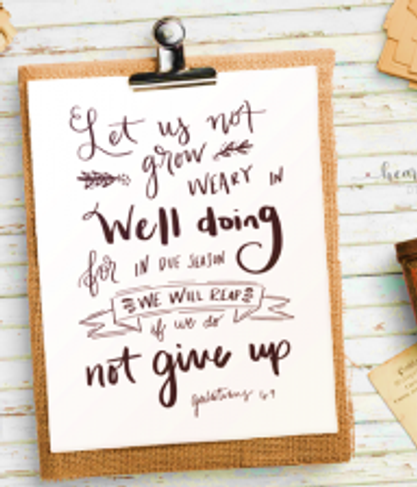 Let us not
grow
WEARY IN
Well doing
for IN DUE SEASON
WE WILL REAP
if we do
not give up
galatians 6:9
hem